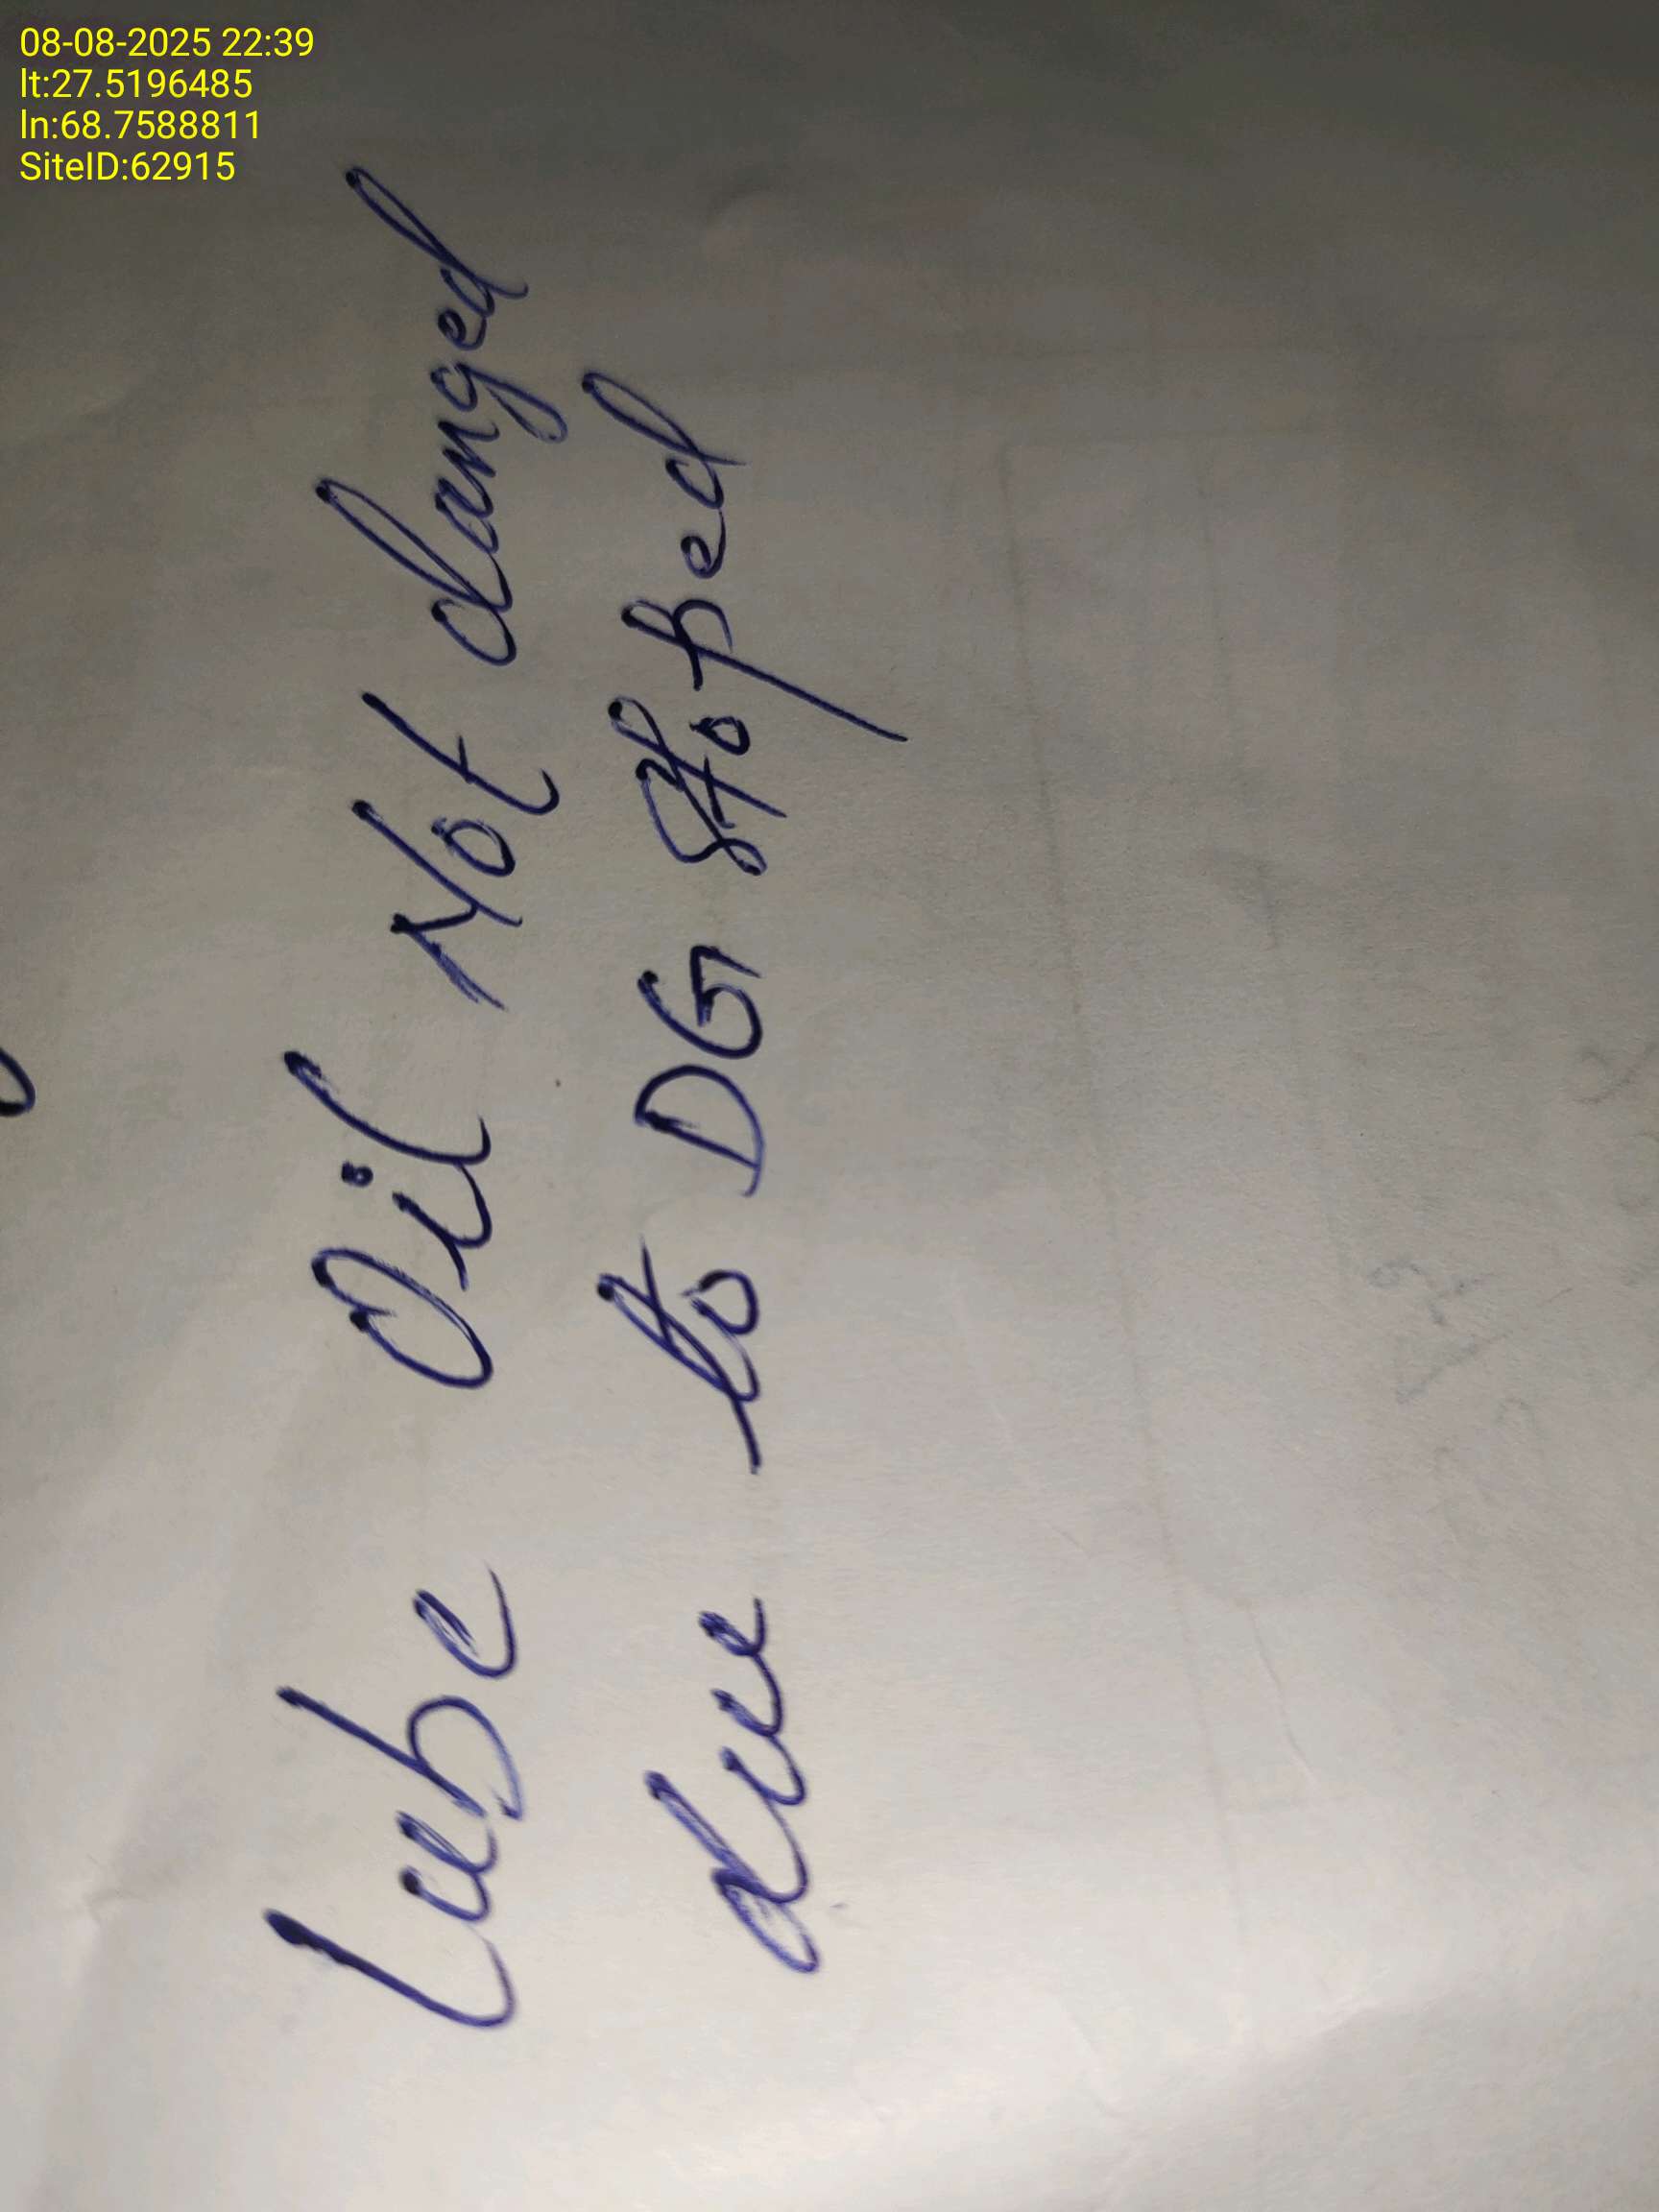 08-08-2025 22:39
lt:27.5196485
ln:68.7588811
SiteID:62915
Lube Oil Not changed
due to DG stoped